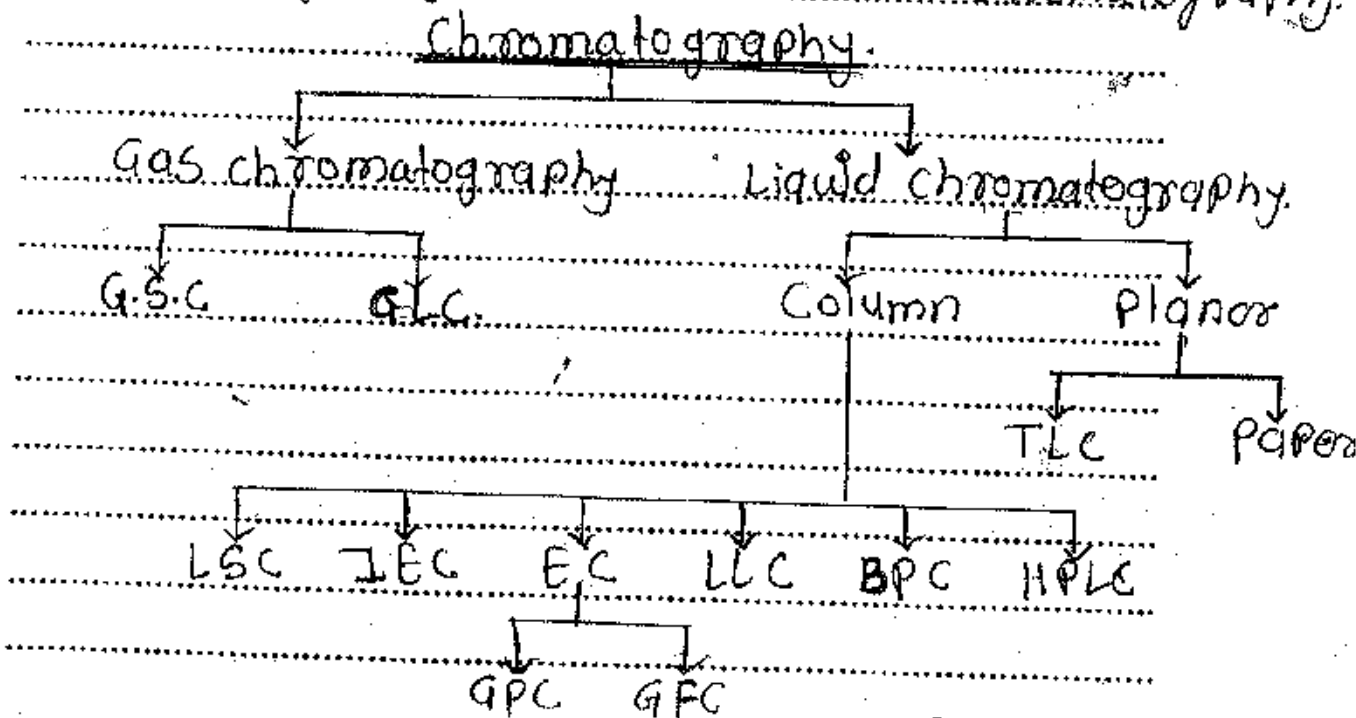 graphy.
Chromatography.
Gas chromatography Liquid chromatography.
G.S.C G.L.C. Column Planor
TLC Paper
LSC IEC EC LLC BPC HPLC
GPC GFC